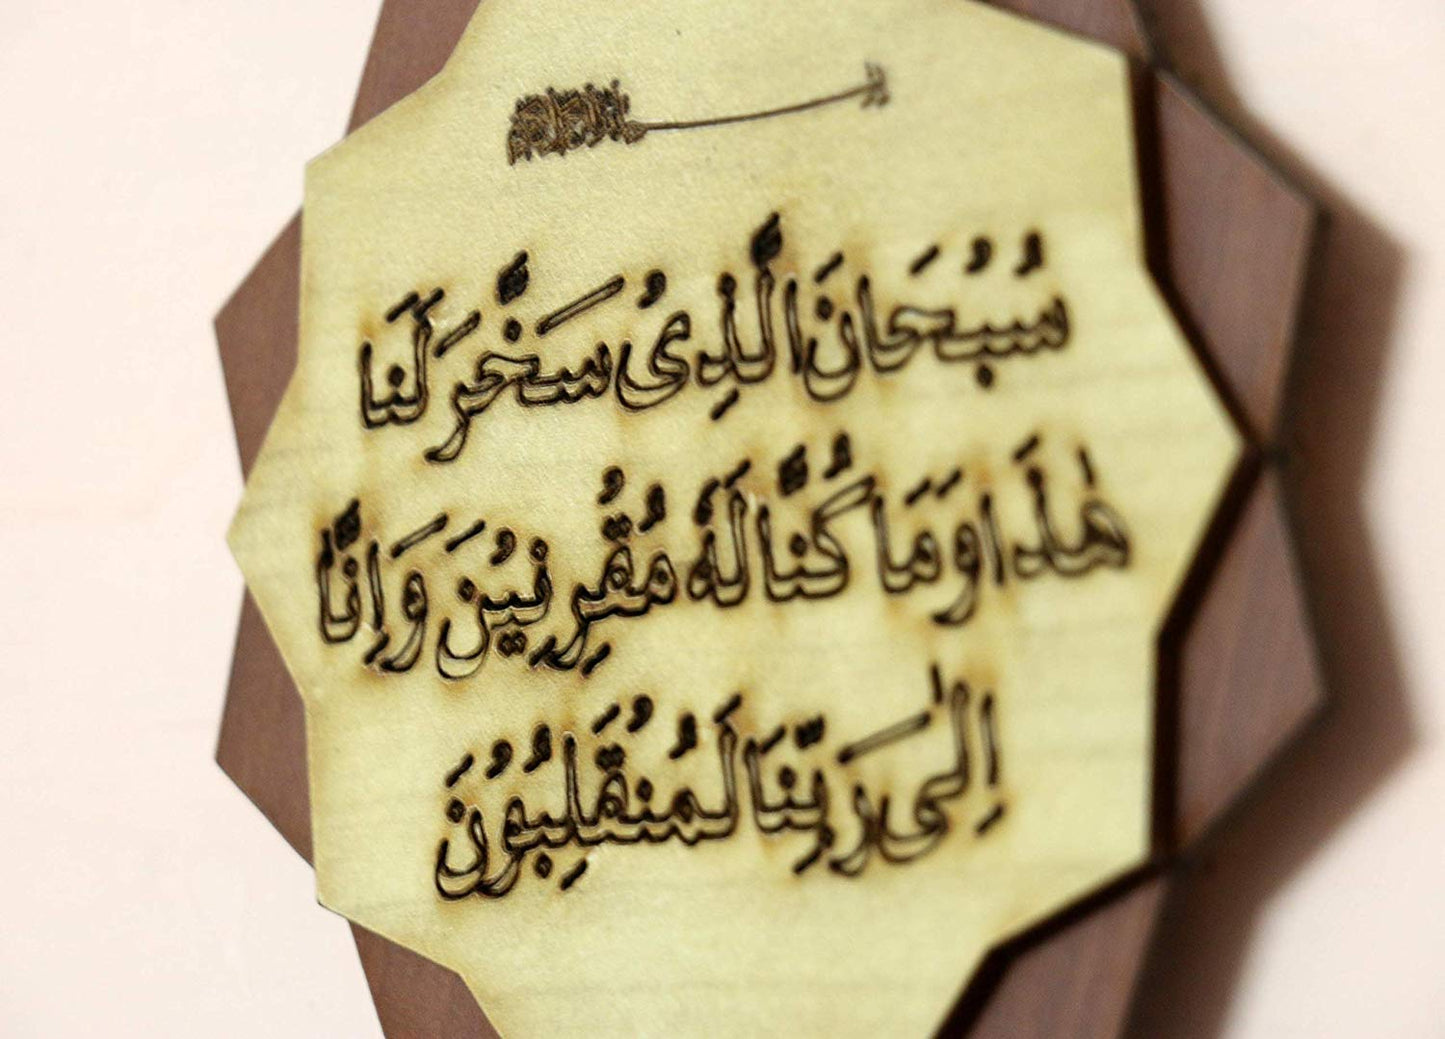 سُبُحَانَ الَّذِىُ سَخَّرَ لَنَا
هٰذَا وَمَا كُنَّا لَهٗ مُقُرِنِيُنَ وَاِنَّا
اِلٰى رَبِّنَا لَمُنُقَلِبُوُنَ